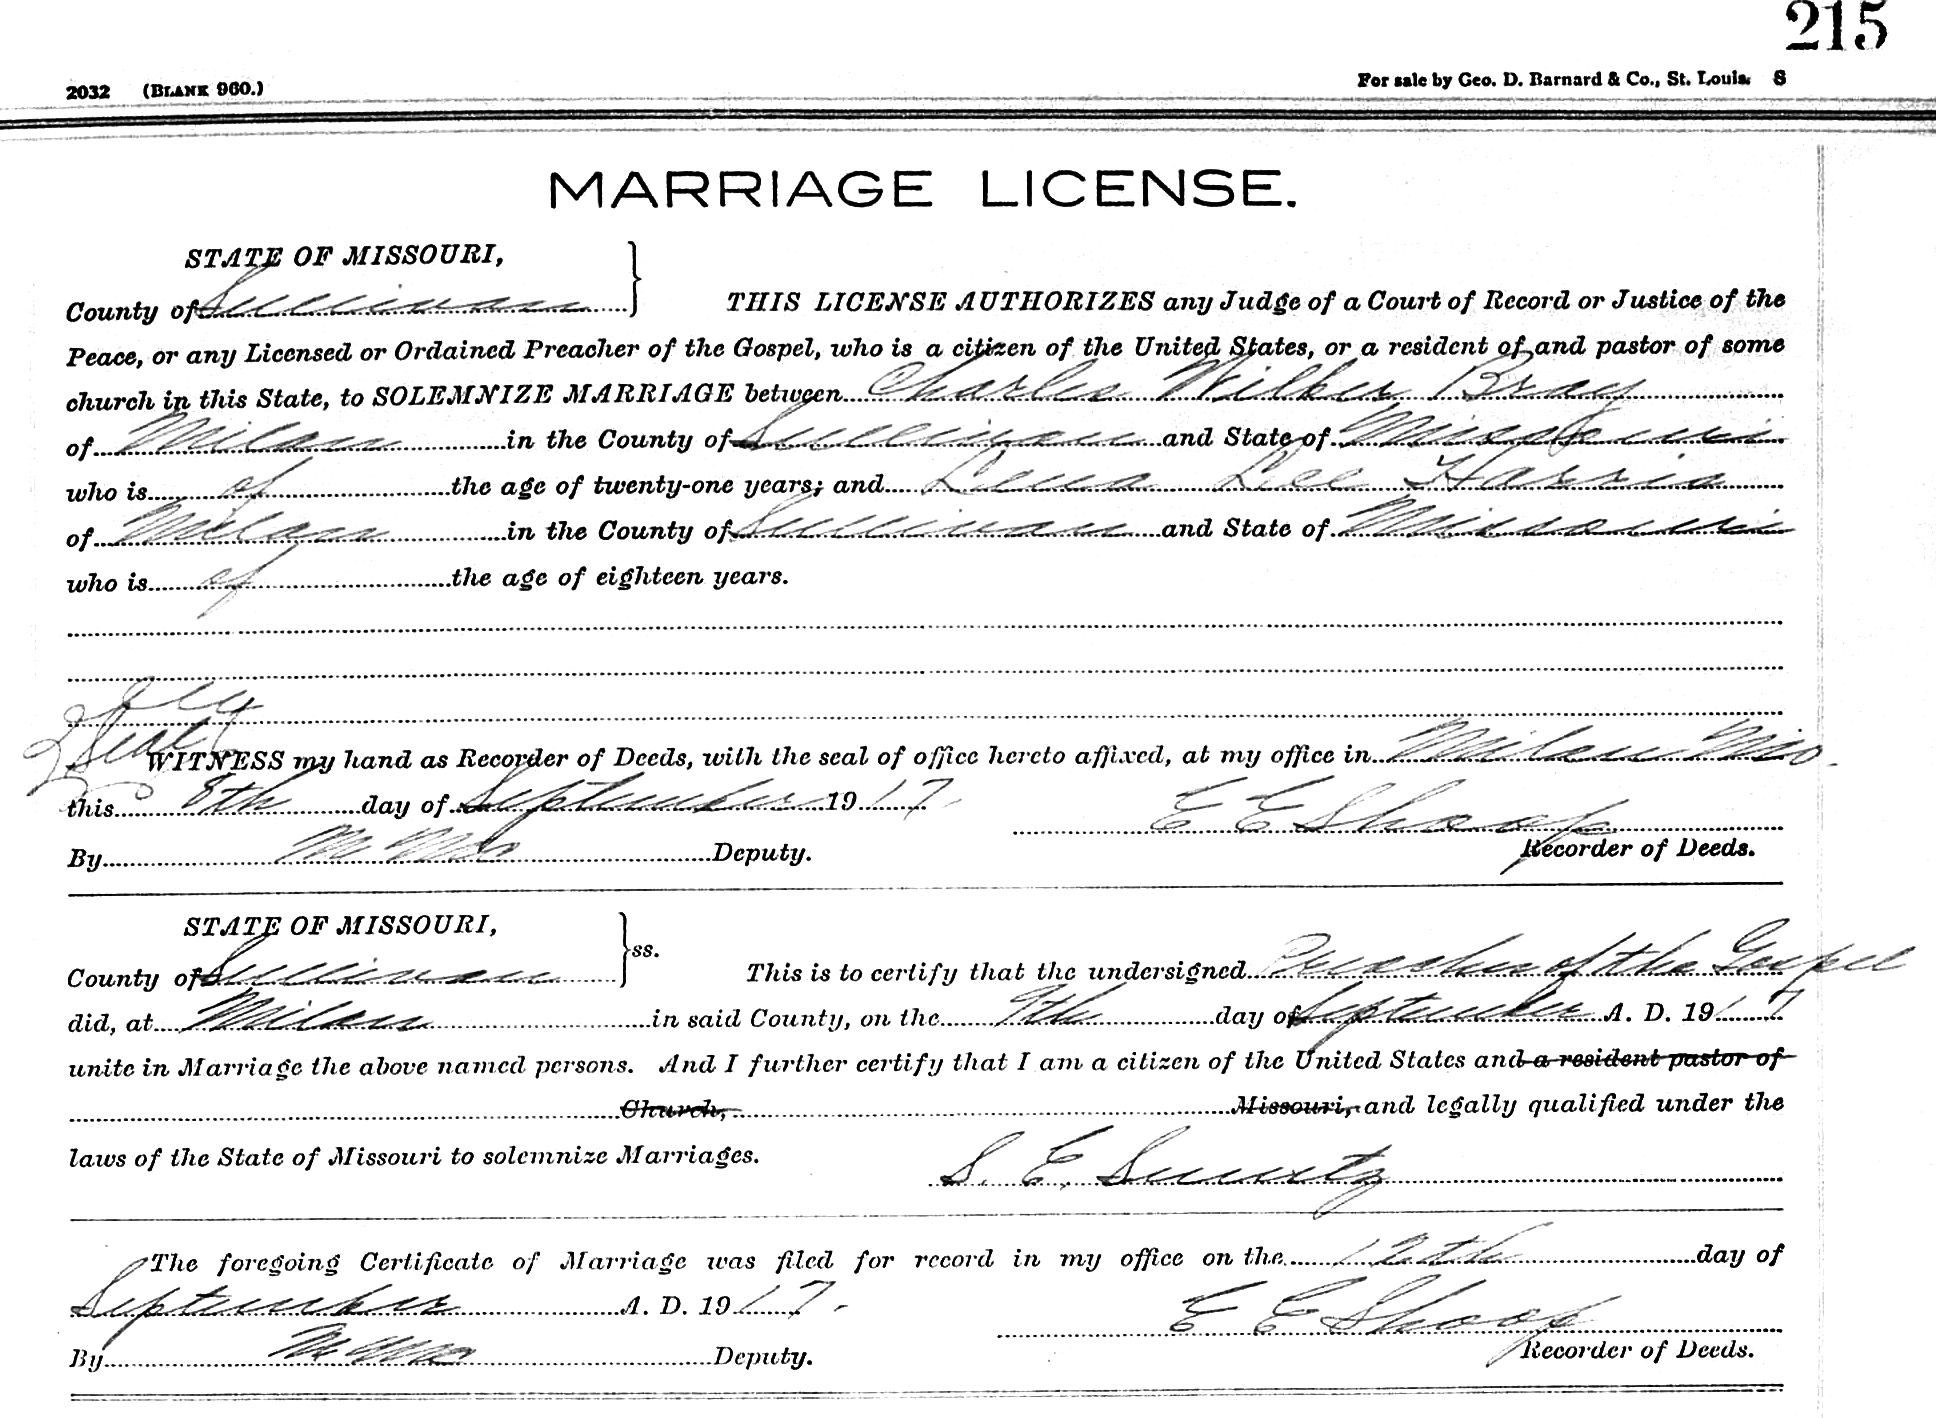 215
2032 (BLANK 960.) For sale by Geo. D. Barnard & Co., St. Louis. S
MARRIAGE LICENSE.
STATE OF MISSOURI,
County of Sullivan THIS LICENSE AUTHORIZES any Judge of a Court of Record or Justice of the
Peace, or any Licensed or Ordained Preacher of the Gospel, who is a citizen of the United States, or a resident of and pastor of some
church in this State, to SOLEMNIZE MARRIAGE between Charles Wilber Bray
of Milan in the County of Sullivan and State of Missouri
who is of the age of twenty-one years; and Lena Lee Harris
of Milan in the County of Sullivan and State of Missouri
who is of the age of eighteen years.
Seal
WITNESS my hand as Recorder of Deeds, with the seal of office hereto affixed, at my office in Milan Mo.
this 8th day of September 1917.
E E Shoop
By Deputy. Recorder of Deeds.
STATE OF MISSOURI,
County of Sullivan ss. This is to certify that the undersigned Preacher of the Gospel
did, at Milan in said County, on the 9th day of September A. D. 1917
unite in Marriage the above named persons. And I further certify that I am a citizen of the United States and a resident pastor of
Church, Missouri, and legally qualified under the
laws of the State of Missouri to solemnize Marriages. S. E.
The foregoing Certificate of Marriage was filed for record in my office on the 12th day of
September A. D. 1917.
E E Shoop
By Deputy. Recorder of Deeds.